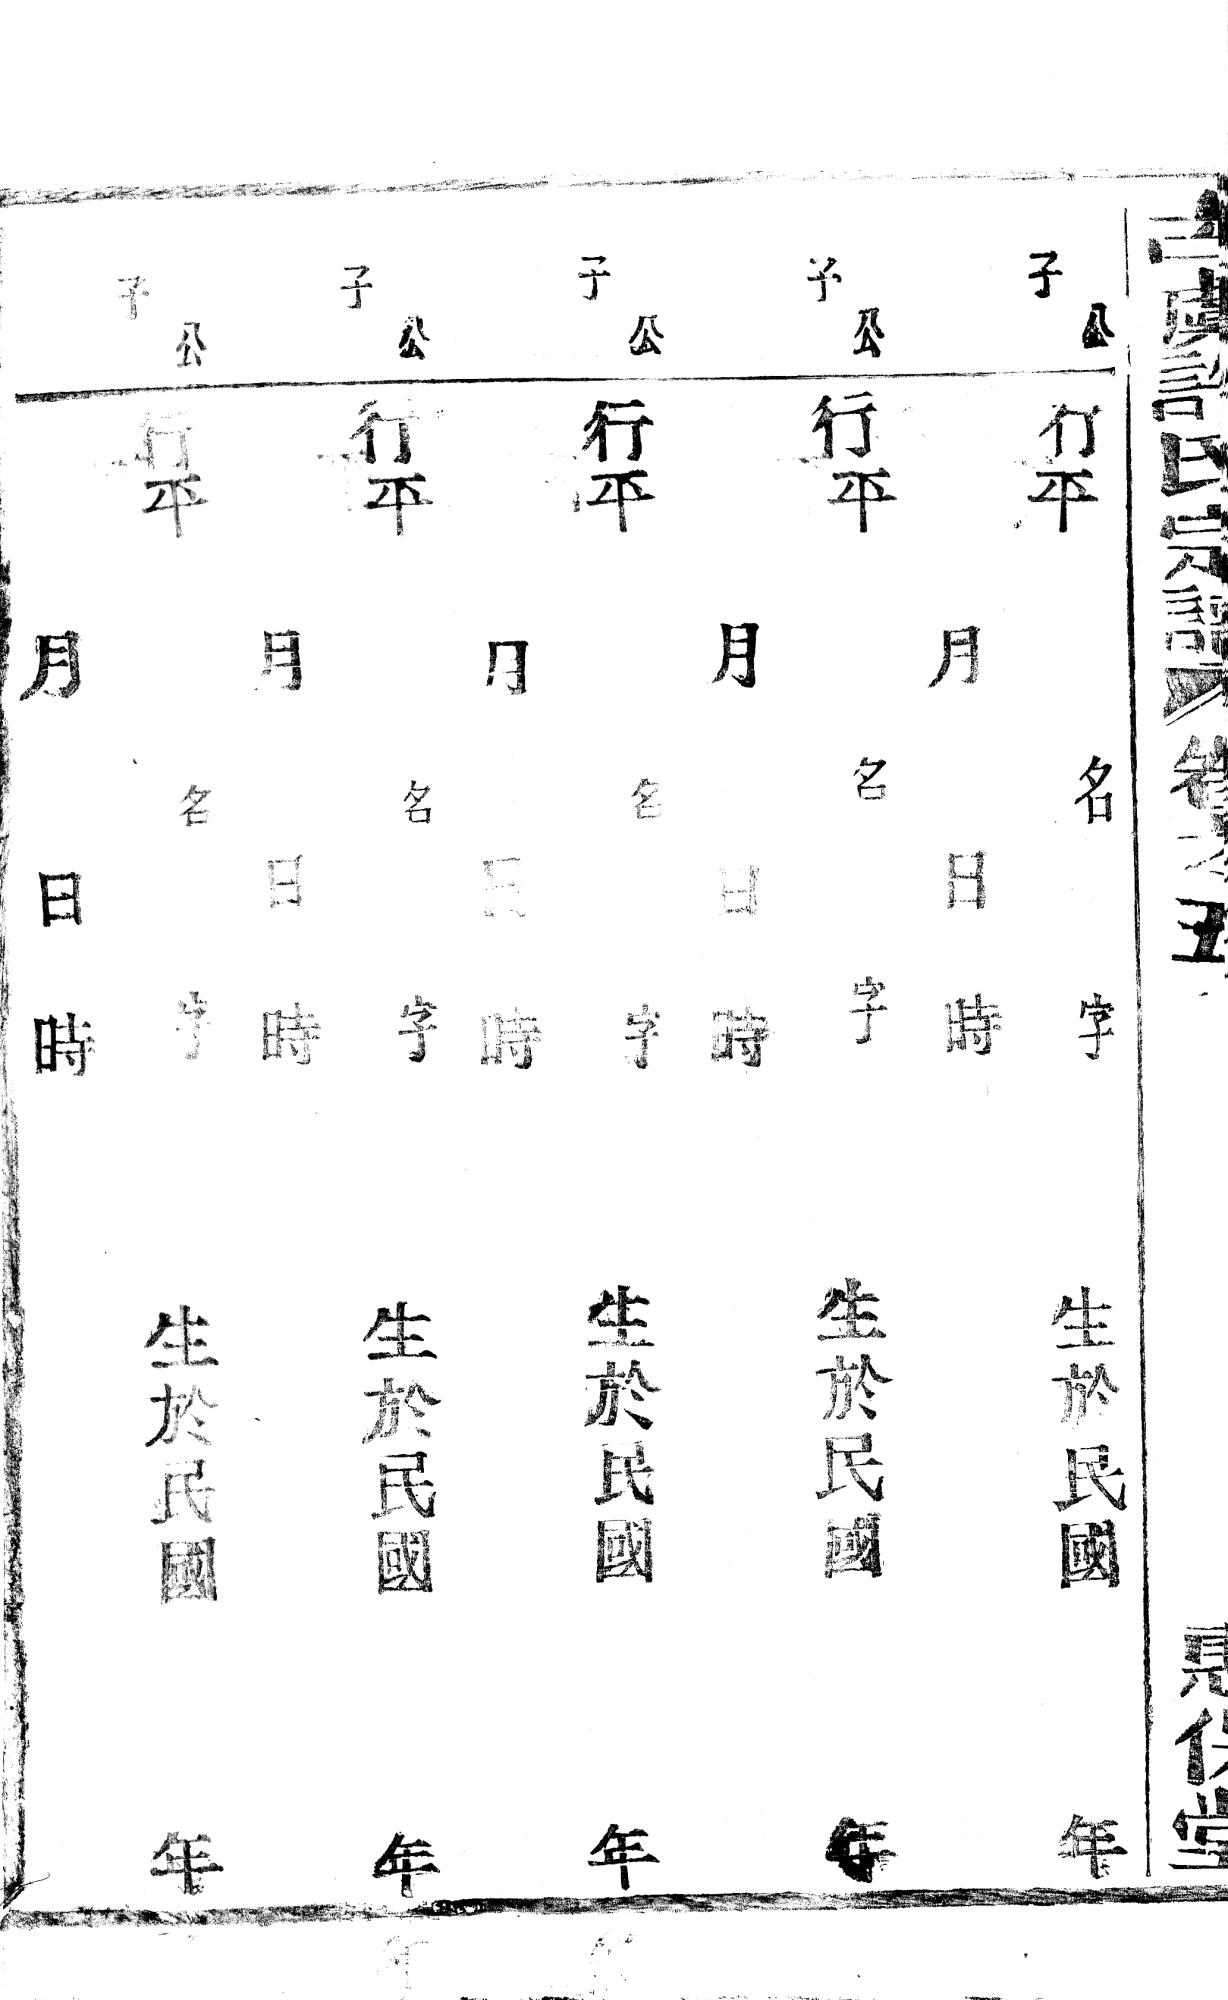 氏宗譜 卷之五 堂
公
子
行平 名 字 生於民國 年
月 日 時
公
子
行平 名 字 生於民國 年
月 日 時
公
子
行平 名 字 生於民國 年
月 日 時
公
子
行平 名 字 生於民國 年
月 日 時
公
子
行平 名 字 生於民國 年
月 日 時